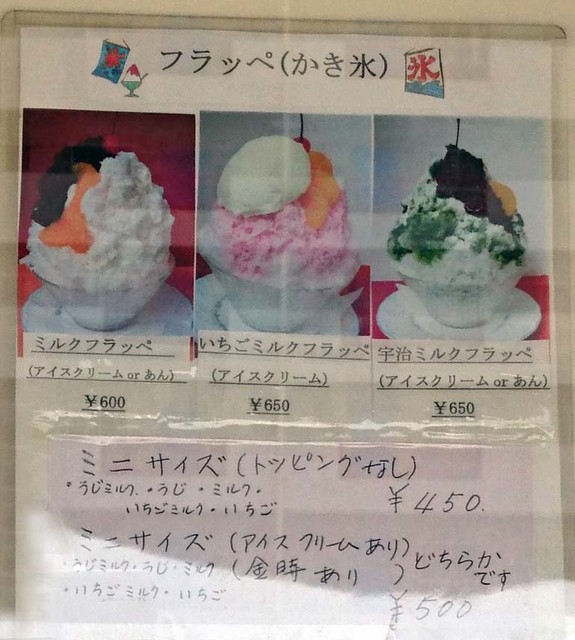 フラッペ(かき氷)
氷
ミルクフラッペ
(アイスクリーム or あん)
￥600
いちごミルクフラッペ
(アイスクリーム)
￥650
宇治ミルクフラッペ
(アイスクリーム or あん)
￥650
ミニサイズ(トッピングなし)
・うじミルク・うじ・ミルク・
いちごミルク・いちご
￥450.
ミニサイズ(アイスクリームあり)
・うじミルク・うじ・ミルク (金時あり )どちらか
です
・いちごミルク・いちご
￥500